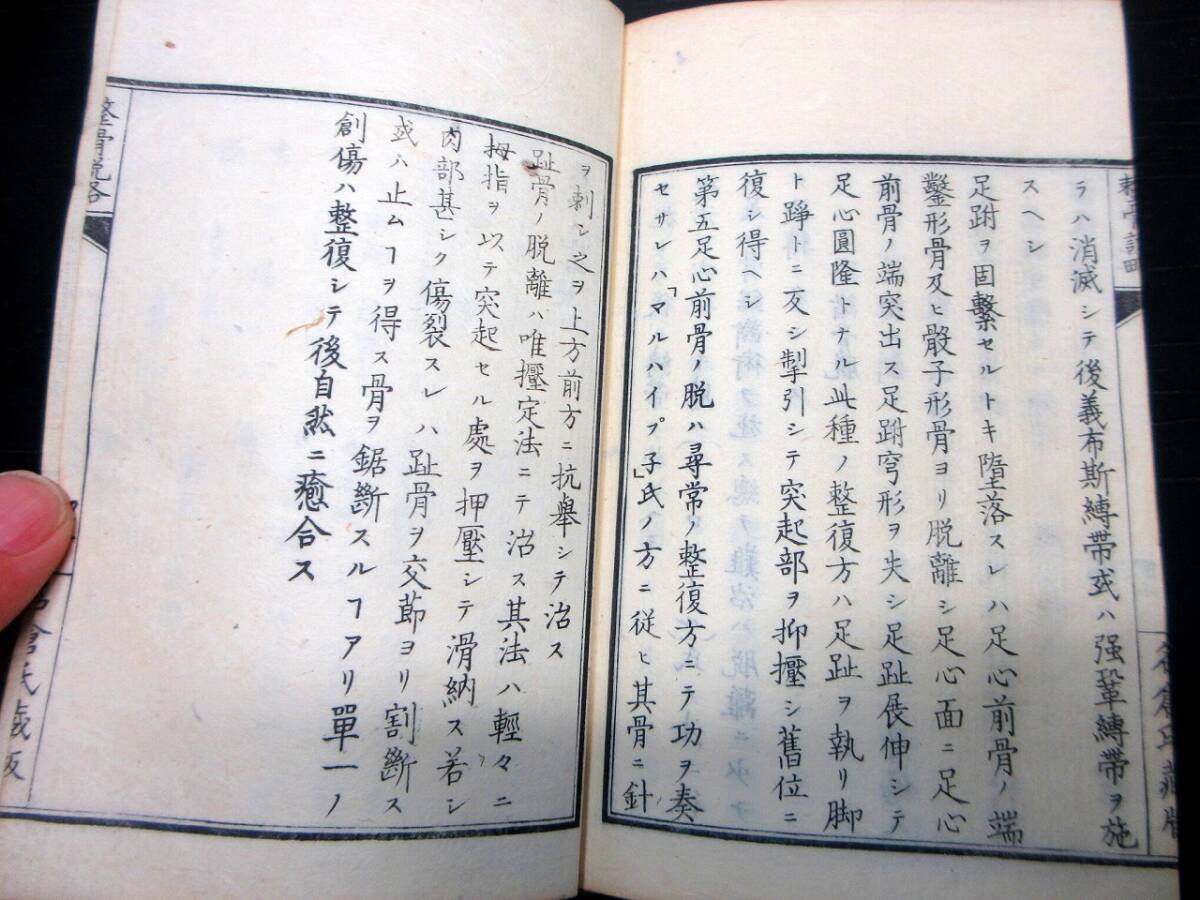 ラハ消滅シテ後義布斯縛帶或ハ强鞏縛帶ヲ施
スヘシ
足跗ヲ固繫セルトキ墮落スレハ足心前骨ノ端
鑿形骨及ヒ骰子形骨ヨリ脱離シ足心面ニ足心
前骨ノ端突出ス足跗穹形ヲ失シ足趾展伸シテ
足心圓隆トナル此種ノ整復方ハ足趾ヲ執リ脚
ト踭トニ反シ掣引シテ突起部ヲ抑壓シ舊位ニ
復シ得ヘシ
第五足心前骨ノ脱ハ尋常ノ整復方ニテ功ヲ奏
セサレハ「マルハイプ子」氏ノ方ニ従ヒ其骨ニ針
ヲ刺シ之ヲ上方前方ニ抗舉シテ治ス
趾骨ノ脱離ハ唯壓定法ニテ治ス其法ハ輕々ニ
拇指ヲ以テ突起セル處ヲ押壓シテ滑納ス若シ
肉部甚シク傷裂スレハ趾骨ヲ交節ヨリ割斷ス
或ハ止ムヿヲ得ス骨ヲ鋸斷スルヿアリ單一ノ
創傷ハ整復シテ後自然ニ癒合ス
整骨説畧
倉氏藏版